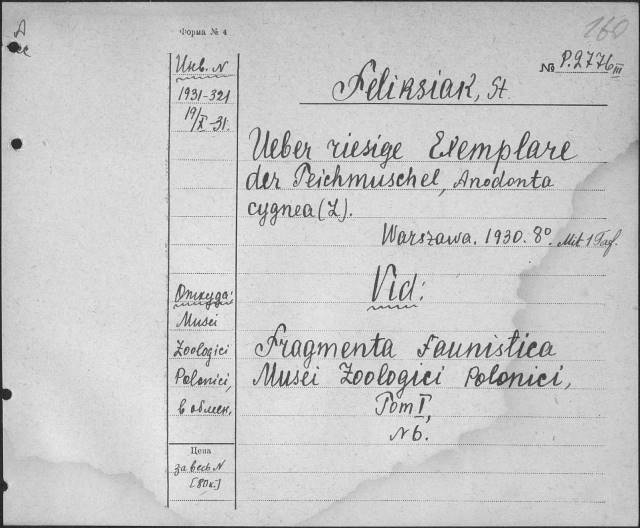 A
160
Форма № 4
№ P.2776 III
Feliksiak, St.
Инв. N
1931-321
19/X-31.
Ueber riesige Exemplare
der Teichmuschel, Anodonta
cygnea (L).
Warszawa. 1930. 8°. Mit 1 Taf.
Vid:
Откуда:
Musei
Zoologici
Polonici,
в обмен.
Fragmenta Faunistica
Musei Zoologici Polonici,
Tom I,
N 6.
Цена
за весь N
[80к.]